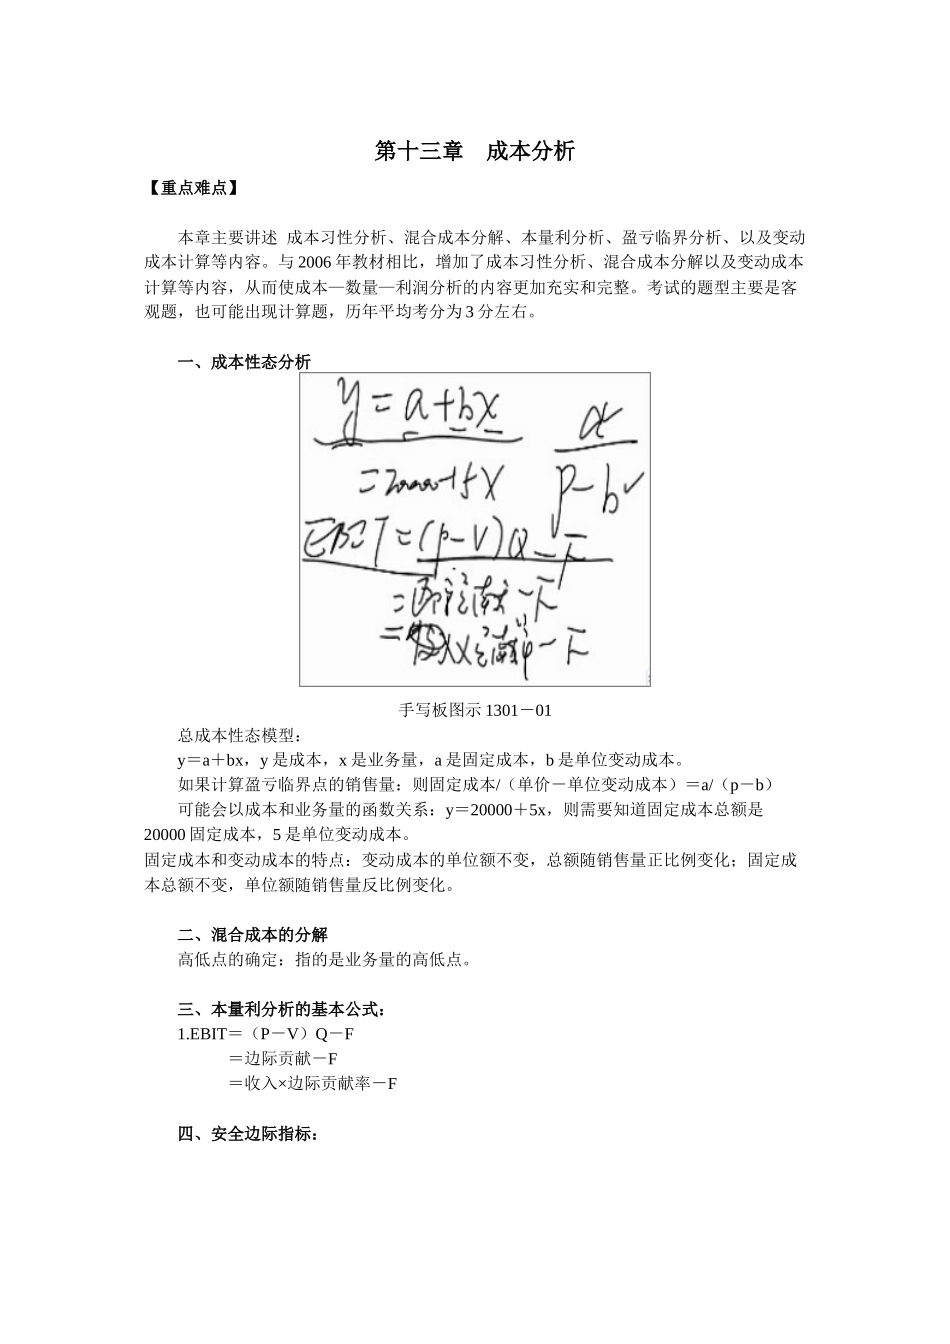 第十三章　成本分析
【重点难点】
本章主要讲述 成本习性分析、混合成本分解、本量利分析、盈亏临界分析、以及变动
成本计算等内容。与 2006 年教材相比，增加了成本习性分析、混合成本分解以及变动成本
计算等内容，从而使成本—数量—利润分析的内容更加充实和完整。考试的题型主要是客
观题，也可能出现计算题，历年平均考分为 3 分左右。
一、成本性态分析
y=a+bx
a
=20000+5X
p-b
EBIT=(P-V)Q-F
=边际贡献-F
=收入X边际贡献率-F
手写板图示 1301－01
总成本性态模型：
y＝a＋bx，y 是成本，x 是业务量，a 是固定成本，b 是单位变动成本。
如果计算盈亏临界点的销售量：则固定成本/（单价－单位变动成本）＝a/（p－b）
可能会以成本和业务量的函数关系：y＝20000＋5x，则需要知道固定成本总额是
20000 固定成本，5 是单位变动成本。
固定成本和变动成本的特点：变动成本的单位额不变，总额随销售量正比例变化；固定成
本总额不变，单位额随销售量反比例变化。
二、混合成本的分解
高低点的确定：指的是业务量的高低点。
三、本量利分析的基本公式：
1.EBIT＝（P－V）Q－F
＝边际贡献－F
＝收入×边际贡献率－F
四、安全边际指标：